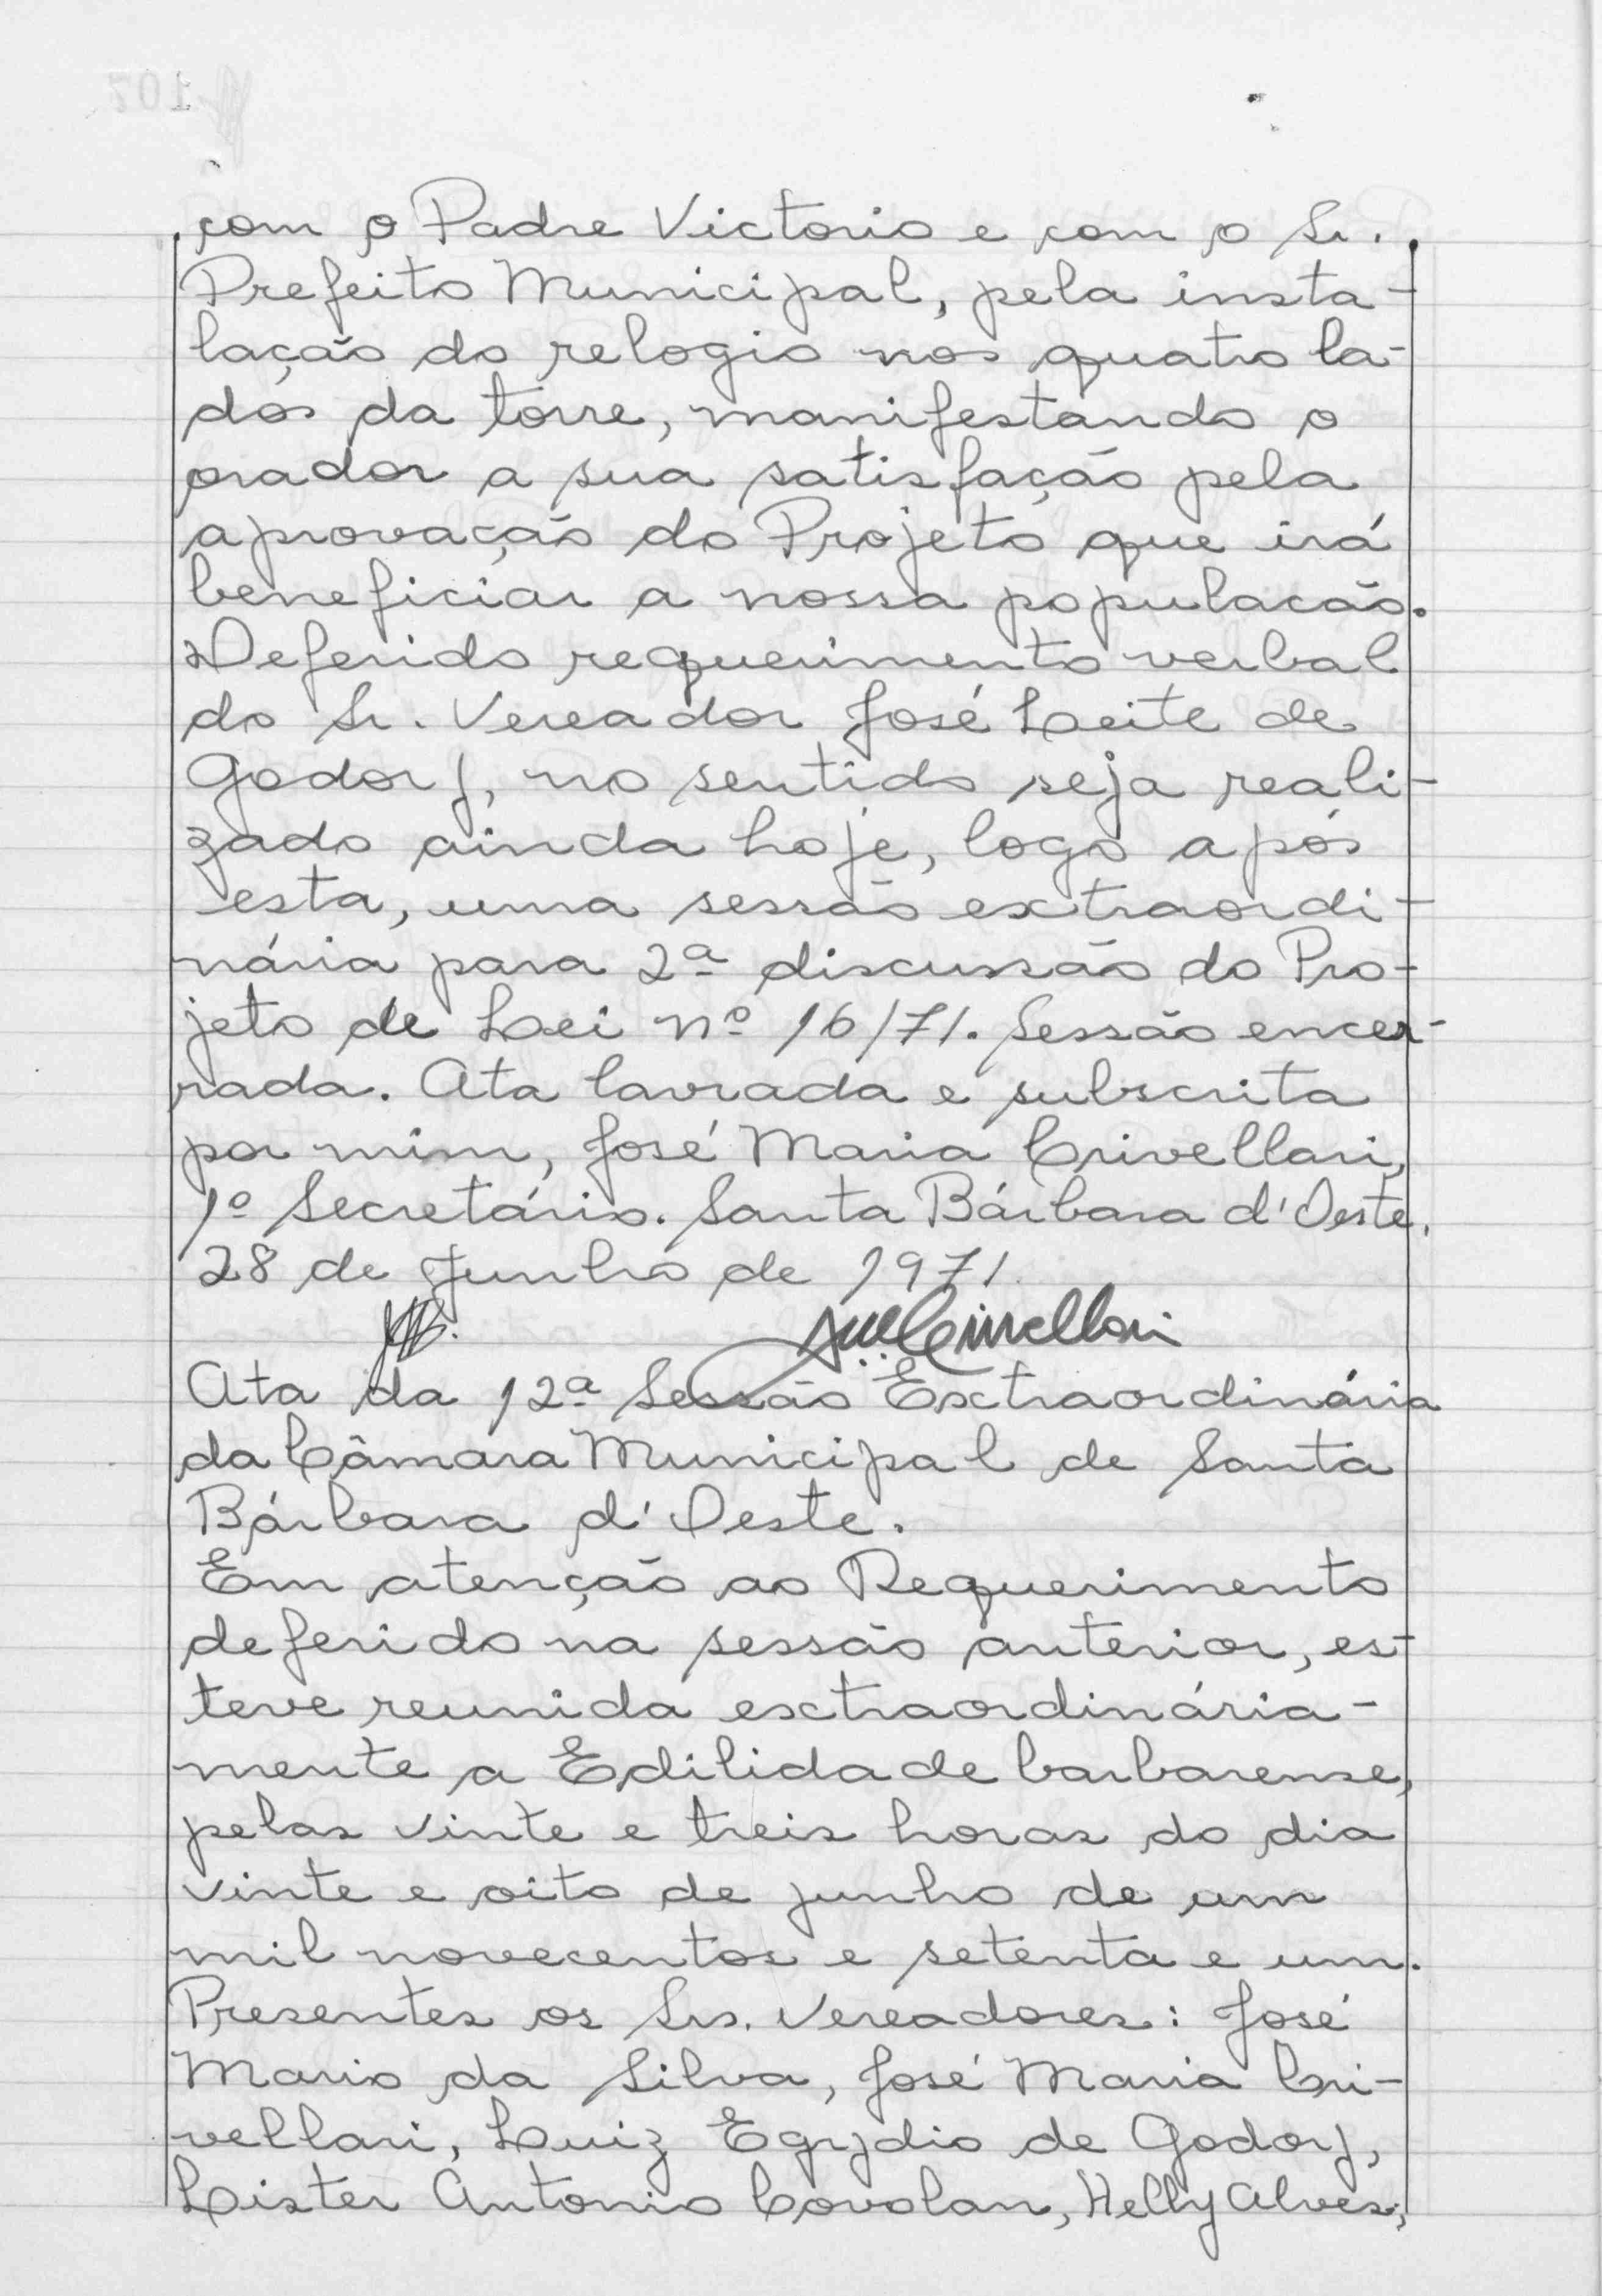 com o Padre Victorio e com o Sr.
Prefeito Municipal, pela insta-
lação do relogio nos quatro la-
dos da torre, manifestando o
orador a sua satisfação pela
aprovação do Projeto que irá
beneficiar a nossa populacão.
Deferido requerimento verbal
do Sr. Vereador José Leite de
Godoy, no sentido seja reali-
zado ainda hoje, logo após
esta, uma sessão extraordi-
nária para 2ª discussão do Pro-
jeto de Lei nº 16/71. Sessão encer-
rada. Ata lavrada e subscrita
por mim, José Maria Crivellari,
1º Secretário. Santa Bárbara d'Oeste,
28 de Junho de 1971.
Crivellari
Ata da 12ª Sessão Extraordinária
da Câmara Municipal de Santa
Bárbara d'Oeste.
Em atenção ao Requerimento
deferido na sessão anterior, es-
teve reunida extraordinária-
mente a Edilidade barbarense,
pelas vinte e treis horas do dia
vinte e oito de junho de um
mil novecentos e setenta e um.
Presentes os Srs. Vereadores: José
Mario da Silva, José Maria Cri-
vellari, Luiz Egydio de Godoy,
Lister Antonio Covolan, Helly Alves,